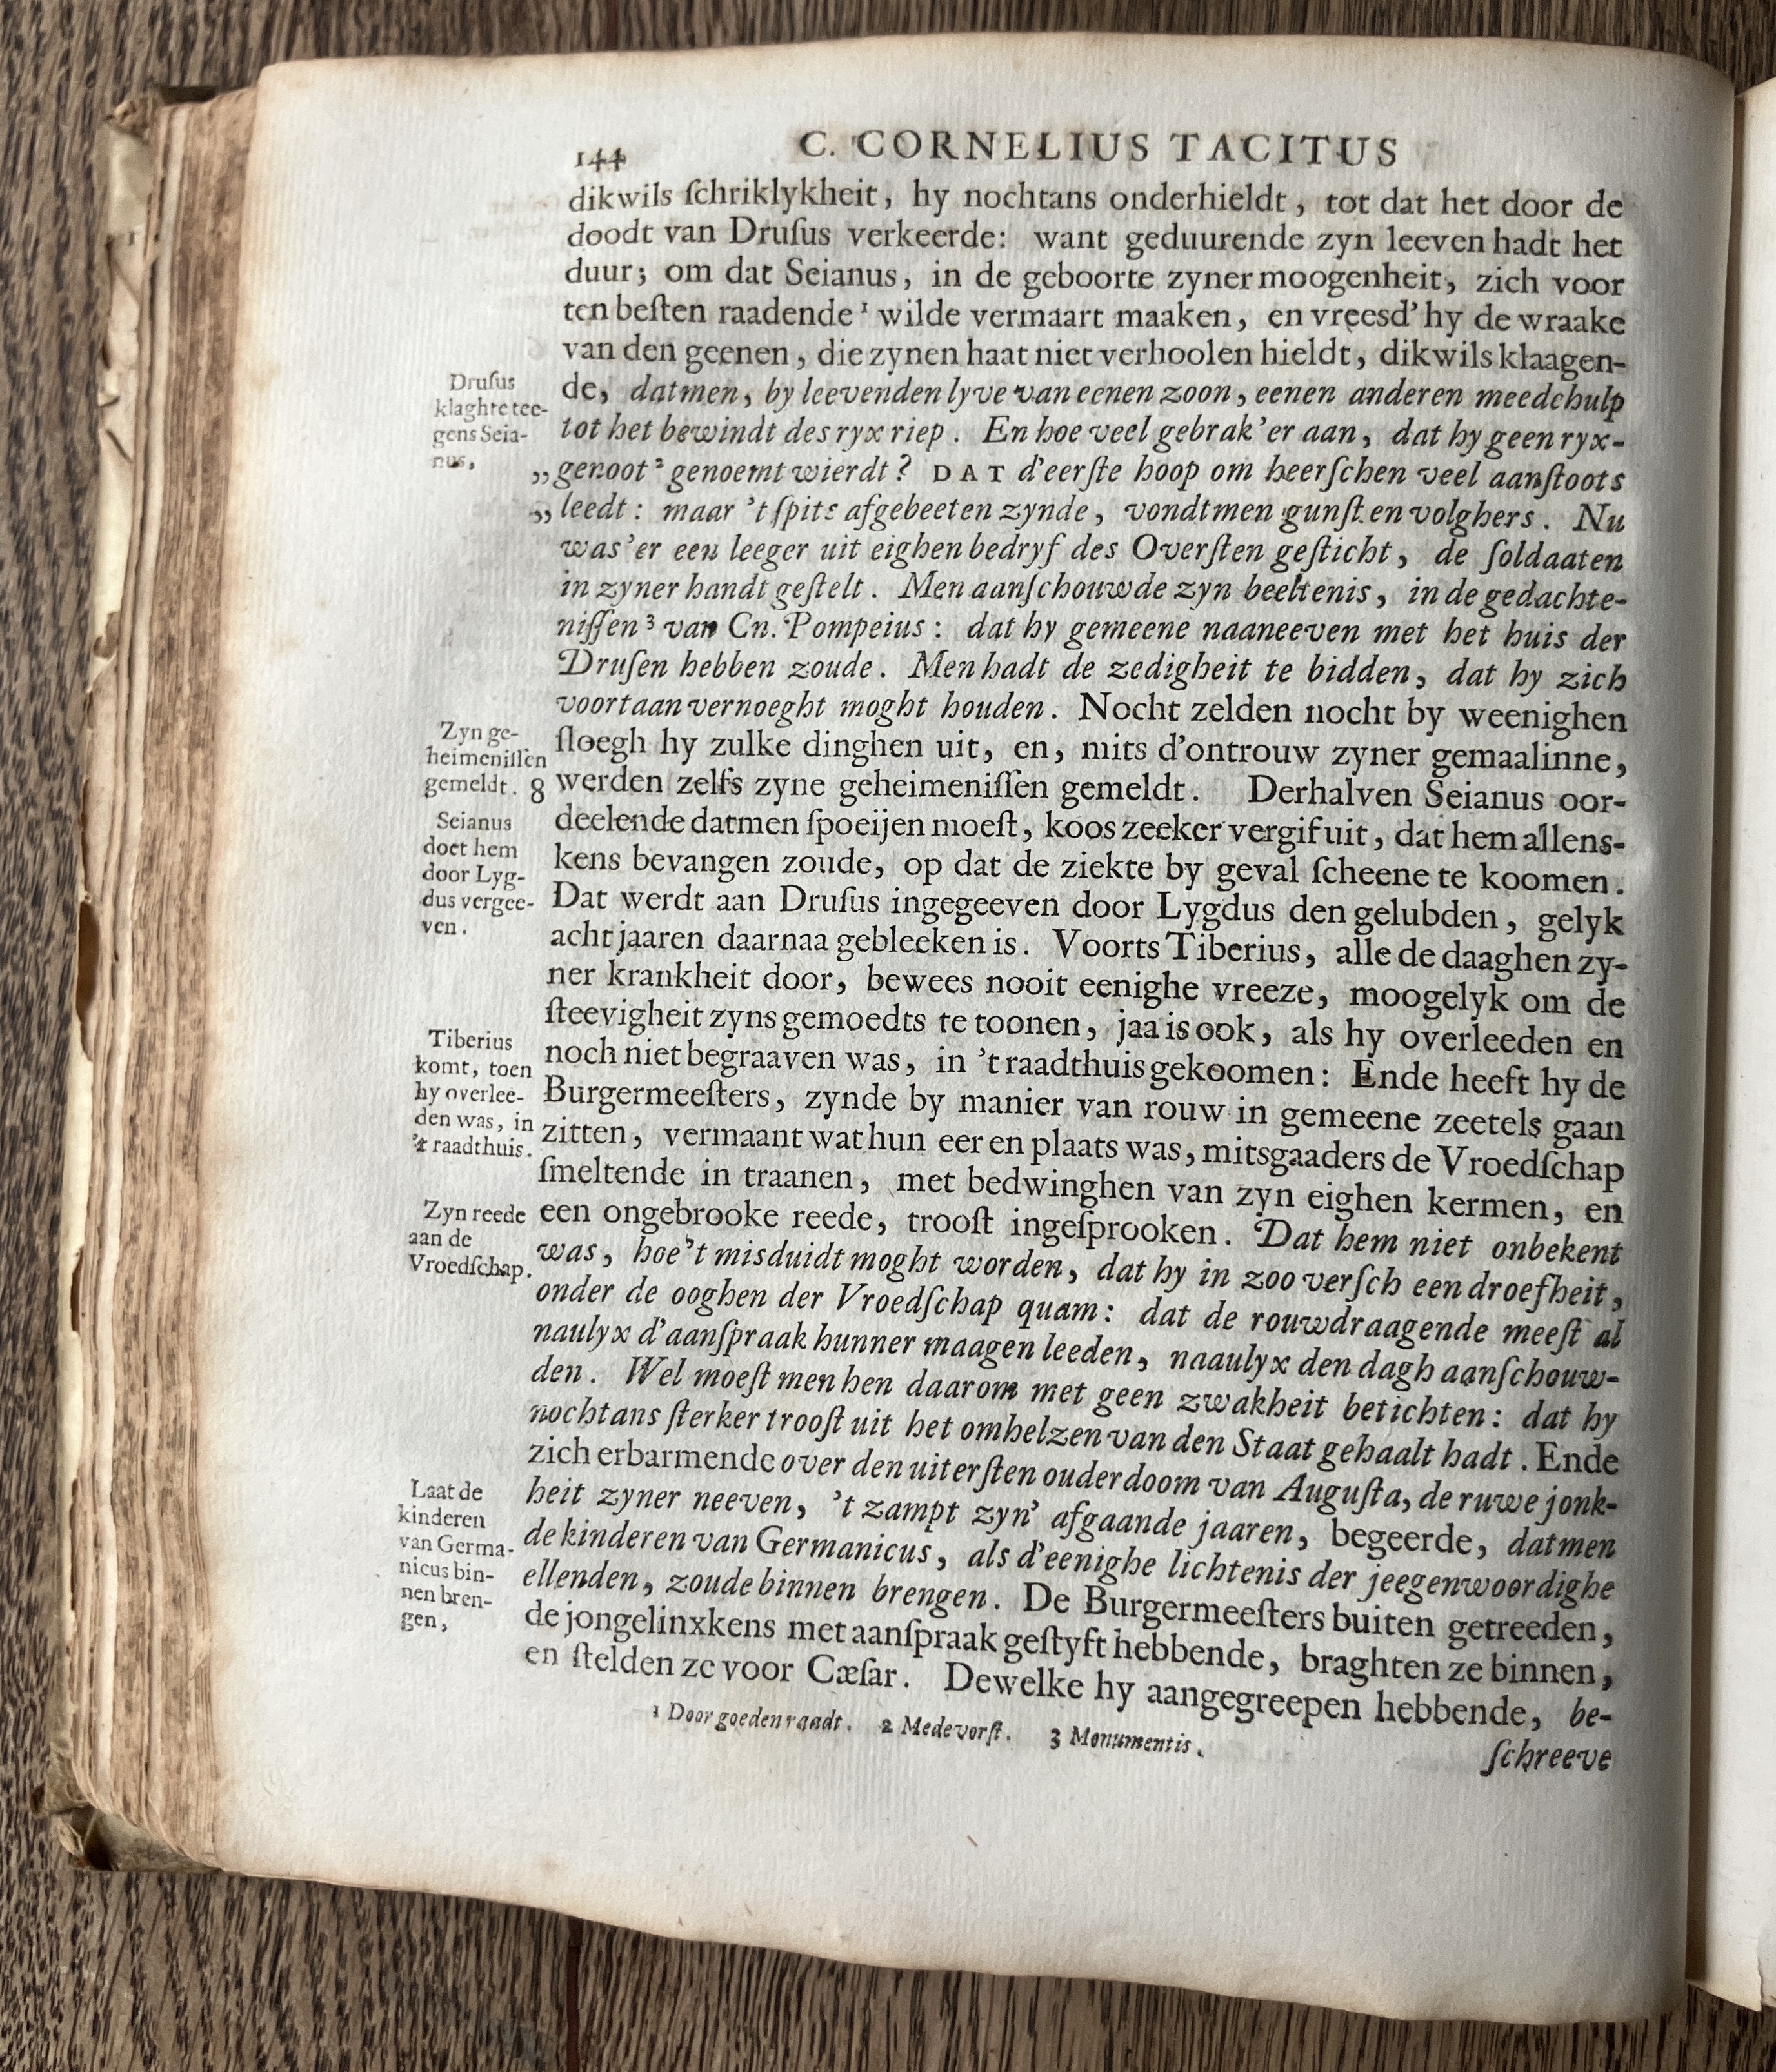 144
C. CORNELIUS TACITUS
dikwils ſchriklykheit, hy nochtans onderhieldt, tot dat het door de
doodt van Druſus verkeerde: want geduurende zyn leeven hadt het
duur; om dat Seianus, in de geboorte zyner moogenheit, zich voor
ten beſten raadende ¹ wilde vermaart maaken, en vreesd' hy de wraake
van den geenen, die zynen haat niet verhoolen hieldt, dikwils klaagen-
de, datmen, by leevenden lyve van eenen zoon, eenen anderen meedehulp
tot het bewindt des ryx riep. En hoe veel gebrak 'er aan, dat hy geen ryx-
„genoot ² genoemt wierdt? DAT d'eerſte hoop om heerſchen veel aanſtoots
„leedt: maar 't ſpits afgebeeten zynde, vondtmen gunſt en volghers. Nu
was'er een leeger uit eighen bedryf des Overſten geſticht, de ſoldaaten
in zyner handt geſtelt. Men aanſchouwde zyn beeltenis, in de gedachte-
niſſen ³ van Cn. Pompeius: dat hy gemeene naaneeven met het huis der
Druſen hebben zoude. Men hadt de zedigheit te bidden, dat hy zich
voortaan vernoeght moght houden. Nocht zelden nocht by weenighen
ſloegh hy zulke dinghen uit, en, mits d'ontrouw zyner gemaalinne,
8 werden zelfs zyne geheimeniſſen gemeldt. Derhalven Seianus oor-
deelende datmen ſpoeijen moeſt, koos zeeker vergif uit, dat hem allens-
kens bevangen zoude, op dat de ziekte by geval ſcheene te koomen.
Dat werdt aan Druſus ingegeeven door Lygdus den gelubden, gelyk
acht jaaren daarnaa gebleeken is. Voorts Tiberius, alle de daaghen zy-
ner krankheit door, bewees nooit eenighe vreeze, moogelyk om de
ſteevigheit zyns gemoedts te toonen, jaa is ook, als hy overleeden en
noch niet begraaven was, in 't raadthuis gekoomen: Ende heeft hy de
Burgermeeſters, zynde by manier van rouw in gemeene zeetels gaan
zitten, vermaant wat hun eer en plaats was, mitsgaaders de Vroedſchap
ſmeltende in traanen, met bedwinghen van zyn eighen kermen, en
een ongebrooke reede, trooſt ingeſprooken. Dat hem niet onbekent
was, hoe 't misduidt moght worden, dat hy in zoo verſch een droefheit,
onder de ooghen der Vroedſchap quam: dat de rouwdraagende meeſt al
naulyx d'aanſpraak hunner maagen leeden, naaulyx den dagh aanſchouw-
den. Wel moeſt men hen daarom met geen zwakheit betichten: dat hy
nochtans ſterker trooſt uit het omhelzen van den Staat gehaalt hadt. Ende
zich erbarmende over den uiterſten ouderdoom van Auguſta, de ruwe jonk-
heit zyner neeven, 't zampt zyn' afgaande jaaren, begeerde, datmen
de kinderen van Germanicus, als d'eenighe lichtenis der jeegenwoordighe
ellenden, zoude binnen brengen. De Burgermeeſters buiten getreeden,
de jongelinxkens met aanſpraak geſtyft hebbende, braghten ze binnen,
en ſtelden ze voor Cæſar. Dewelke hy aangegreepen hebbende, be-
ſchreeve
1 Door goeden raadt. 2 Medevorſt. 3 Monumentis.
Druſus
klaghte tee-
gens Seia-
nus,
Zyn ge-
heimeniſſen
gemeldt.
Seianus
doet hem
door Lyg-
dus vergee-
ven.
Tiberius
komt, toen
hy overlee-
den was, in
't raadthuis.
Zyn reede
aan de
Vroedſchap.
Laat de
kinderen
van Germa-
nicus bin-
nen bren-
gen,